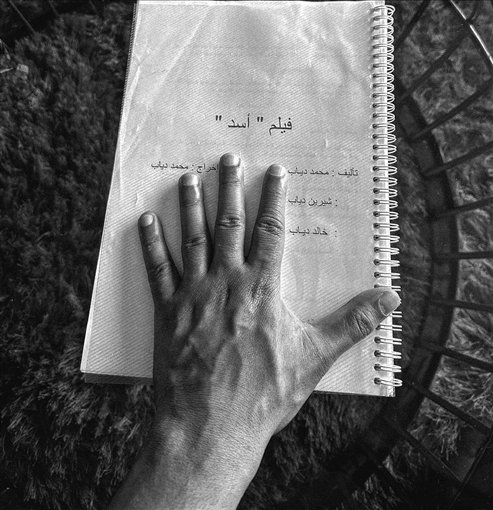 فيلم " أسد "
تأليف : محمد دياب خراج : محمد دياب
: شيرين دياب
: خالد دياب